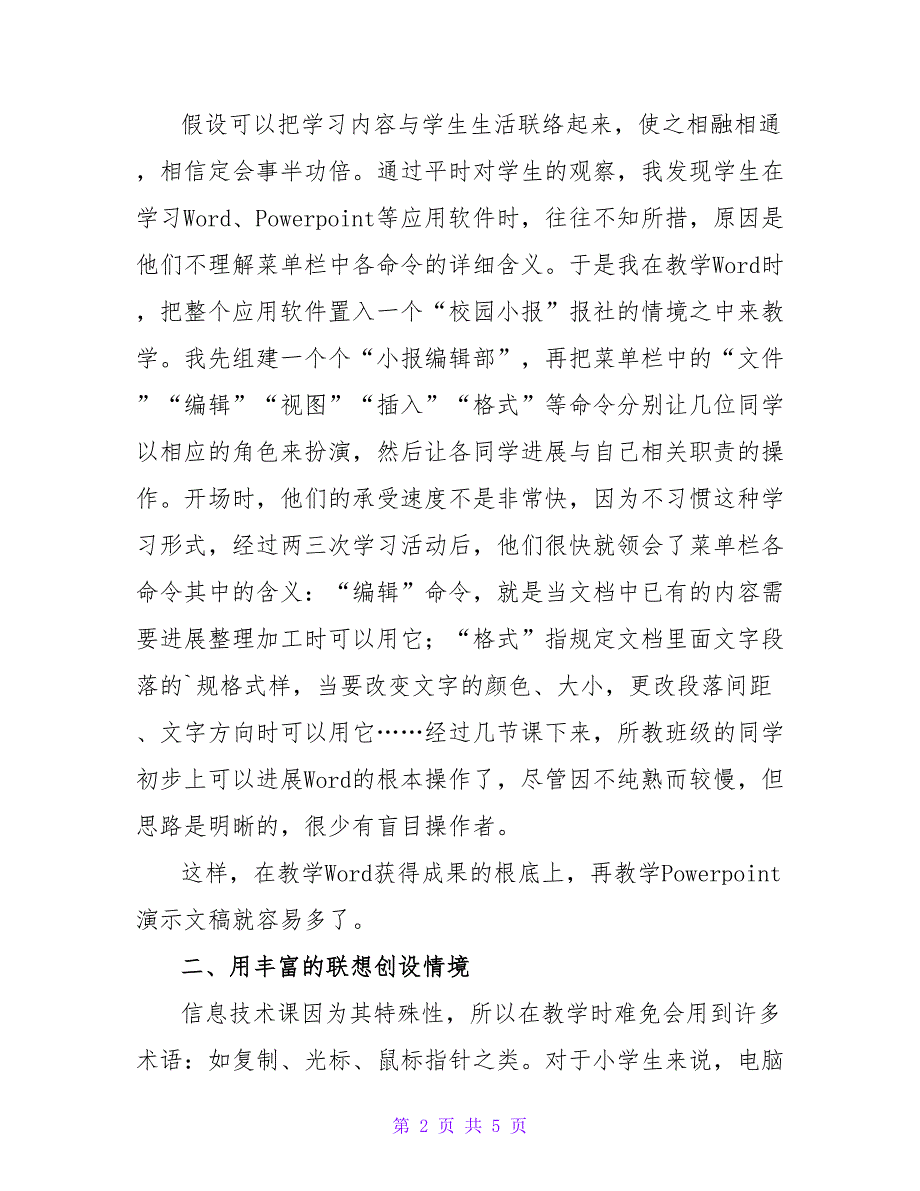 假设可以把学习内容与学生生活联络起来，使之相融相通
，相信定会事半功倍。通过平时对学生的观察，我发现学生在
学习Word、Powerpoint等应用软件时，往往不知所措，原因是
他们不理解菜单栏中各命令的详细含义。于是我在教学Word时
，把整个应用软件置入一个“校园小报”报社的情境之中来教
学。我先组建一个个“小报编辑部”，再把菜单栏中的“文件
”“编辑”“视图”“插入”“格式”等命令分别让几位同学
以相应的角色来扮演，然后让各同学进展与自己相关职责的操
作。开场时，他们的承受速度不是非常快，因为不习惯这种学
习形式，经过两三次学习活动后，他们很快就领会了菜单栏各
命令其中的含义：“编辑”命令，就是当文档中已有的内容需
要进展整理加工时可以用它；“格式”指规定文档里面文字段
落的`规格式样，当要改变文字的颜色、大小，更改段落间距
、文字方向时可以用它……经过几节课下来，所教班级的同学
初步上可以进展Word的根本操作了，尽管因不纯熟而较慢，但
思路是明晰的，很少有盲目操作者。
这样，在教学Word获得成果的根底上，再教学Powerpoint
演示文稿就容易多了。
二、用丰富的联想创设情境
信息技术课因为其特殊性，所以在教学时难免会用到许多
术语：如复制、光标、鼠标指针之类。对于小学生来说，电脑
第 2 页 共 5 页